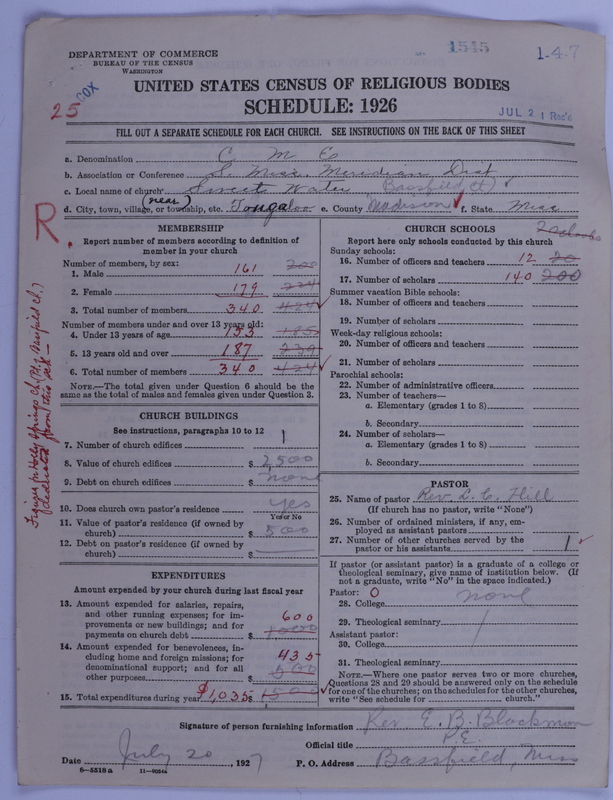 DEPARTMENT OF COMMERCE
BUREAU OF THE CENSUS
WASHINGTON
1545
1-4-7
25 COX
UNITED STATES CENSUS OF RELIGIOUS BODIES
SCHEDULE: 1926
JUL 21 Rec'd
FILL OUT A SEPARATE SCHEDULE FOR EACH CHURCH. SEE INSTRUCTIONS ON THE BACK OF THIS SHEET
a. Denomination C M E
b. Association or Conference S. Miss. Meridian Dist
c. Local name of church Sweet Water Bassfield Ct
d. City, town, village, (near) or township, etc. Tougaloo e. County Madison f. State Miss
R.
MEMBERSHIP
Report number of members according to definition of member in your church
Number of members, by sex:
1. Male 161 200
2. Female 179 224
3. Total number of members 340 424
Number of members under and over 13 years old:
4. Under 13 years of age 153 185
5. 13 years old and over 187 239
6. Total number of members 340 424
NOTE.—The total given under Question 6 should be the same as the total of males and females given under Question 3.
CHURCH BUILDINGS
See instructions, paragraphs 10 to 12
7. Number of church edifices 1
8. Value of church edifices $ 2,500
9. Debt on church edifices $ none
10. Does church own pastor's residence yes
Yes or No
11. Value of pastor's residence (if owned by church) $ 500
12. Debt on pastor's residence (if owned by church) $
EXPENDITURES
Amount expended by your church during last fiscal year
13. Amount expended for salaries, repairs, and other running expenses; for improvements or new buildings; and for payments on church debt $ 600 1000
14. Amount expended for benevolences, including home and foreign missions; for denominational support; and for all other purposes $ 435 500
15. Total expenditures during year $1,035 $ 1500
CHURCH SCHOOLS
2 schools
Report here only schools conducted by this church
Sunday schools:
16. Number of officers and teachers 12 20
17. Number of scholars 140 200
Summer vacation Bible schools:
18. Number of officers and teachers
19. Number of scholars
Week-day religious schools:
20. Number of officers and teachers
21. Number of scholars
Parochial schools:
22. Number of administrative officers
23. Number of teachers—
a. Elementary (grades 1 to 8)
b. Secondary
24. Number of scholars—
a. Elementary (grades 1 to 8)
b. Secondary
PASTOR
25. Name of pastor Rev. L. C. Hill
(If church has no pastor, write "None")
26. Number of ordained ministers, if any, employed as assistant pastors
27. Number of other churches served by the pastor or his assistants 1
If pastor (or assistant pastor) is a graduate of a college or theological seminary, give name of institution below. (If not a graduate, write "No" in the space indicated.)
Pastor: O
28. College none
29. Theological seminary
Assistant pastor:
30. College
31. Theological seminary
NOTE.—Where one pastor serves two or more churches, Questions 28 and 29 should be answered only on the schedule for one of the churches; on the schedules for the other churches, write "See schedule for church."
Signature of person furnishing information Rev. E. B. Blackmon
Official title P.E.
Date July 20, 1927 P. O. Address Bassfield, Miss
8—5518a 11—9054a